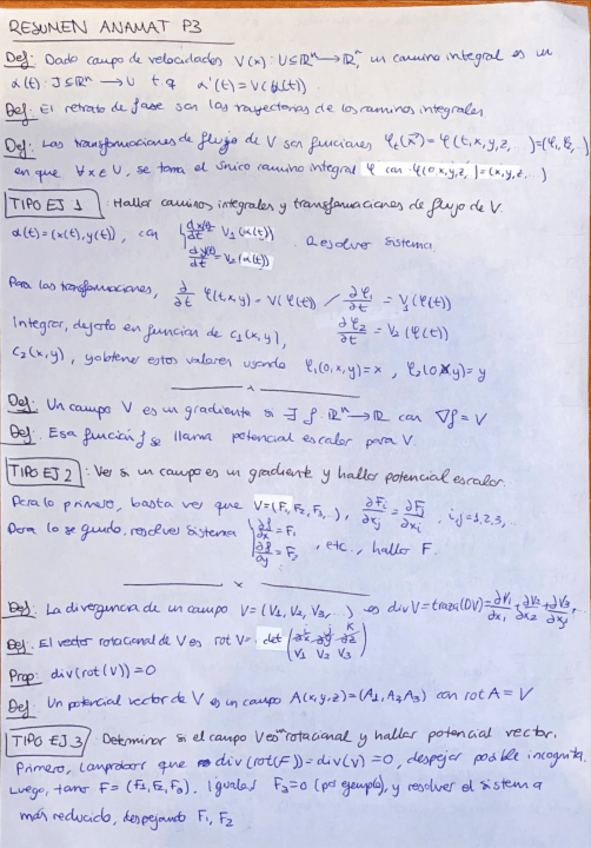 RESUMEN ANAMAT P3
Def: Dado campo de velocidades V(x): U⊆ℝⁿ→ℝⁿ, un camino integral es un
α(t): J⊆ℝⁿ → U t.q α'(t) = V(α(t))
Def: El retrato de fase son las trayectorias de los caminos integrales
Def: Las transformaciones de flujo de V son funciones φₜ(x⃗) = φ(t,x,y,z,...) = (φ₁,φ₂,..)
en que ∀x∈U, se toma el único camino integral φ con φ(0,x,y,z,) = (x,y,z,...)
TIPO EJ 1: Hallar caminos integrales y transformaciones de flujo de V.
α(t) = (x(t), y(t)), con { dx(t)/dt = V₁(α(t)) . Resolver sistema.
dy(t)/dt = V₂(α(t))
Para las transformaciones, ∂/∂t φ(t,x,y) = V(φ(t)) / ∂φ₁/∂t = V₁(φ(t))
Integrar, dejarlo en función de c₁(x,y), ∂φ₂/∂t = V₂(φ(t))
c₂(x,y), y obtener estos valores usando φ₁(0,x,y) = x, φ₂(0,x,y) = y
Def: Un campo V es un gradiente si ∃ f: ℝⁿ→ℝ con ∇f = V
Def: Esa función f se llama potencial escalar para V.
TIPO EJ 2: Ver si un campo es un gradiente y hallar potencial escalar.
Para lo primero, basta ver que V=(F₁,F₂,F₃,..), ∂Fᵢ/∂xⱼ = ∂Fⱼ/∂xᵢ, i,j=1,2,3,..
Para lo segundo, resolver sistema { ∂f/∂x = F₁
∂f/∂y = F₂, etc., hallar F.
Def: La divergencia de un campo V = (V₁,V₂,V₃,...) es div V = traza(DV) = ∂V₁/∂x₁ + ∂V₂/∂x₂ + ∂V₃/∂xy,..
Def. El vector rotacional de V es rot V = det ( i j k ∂x ∂y ∂z
V₁ V₂ V₃ )
Prop: div(rot(V)) = 0
Def Un potencial vector de V es un campo A(x,y,z) = (A₁,A₂,A₃) con rot A = V
TIPO EJ 3: Determinar si el campo V es un rotacional y hallar potencial vector.
Primero, comprobar que div(rot(F)) = div(V) = 0, despejar posible incognita.
Luego, tomo F = (F₁,F₂,F₃). Igualas F₃=0 (por ejemplo), y resolver el sistema
más reducido, despejando F₁, F₂